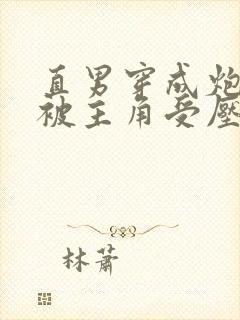 直男穿成炮
被主角受壓
林蕭